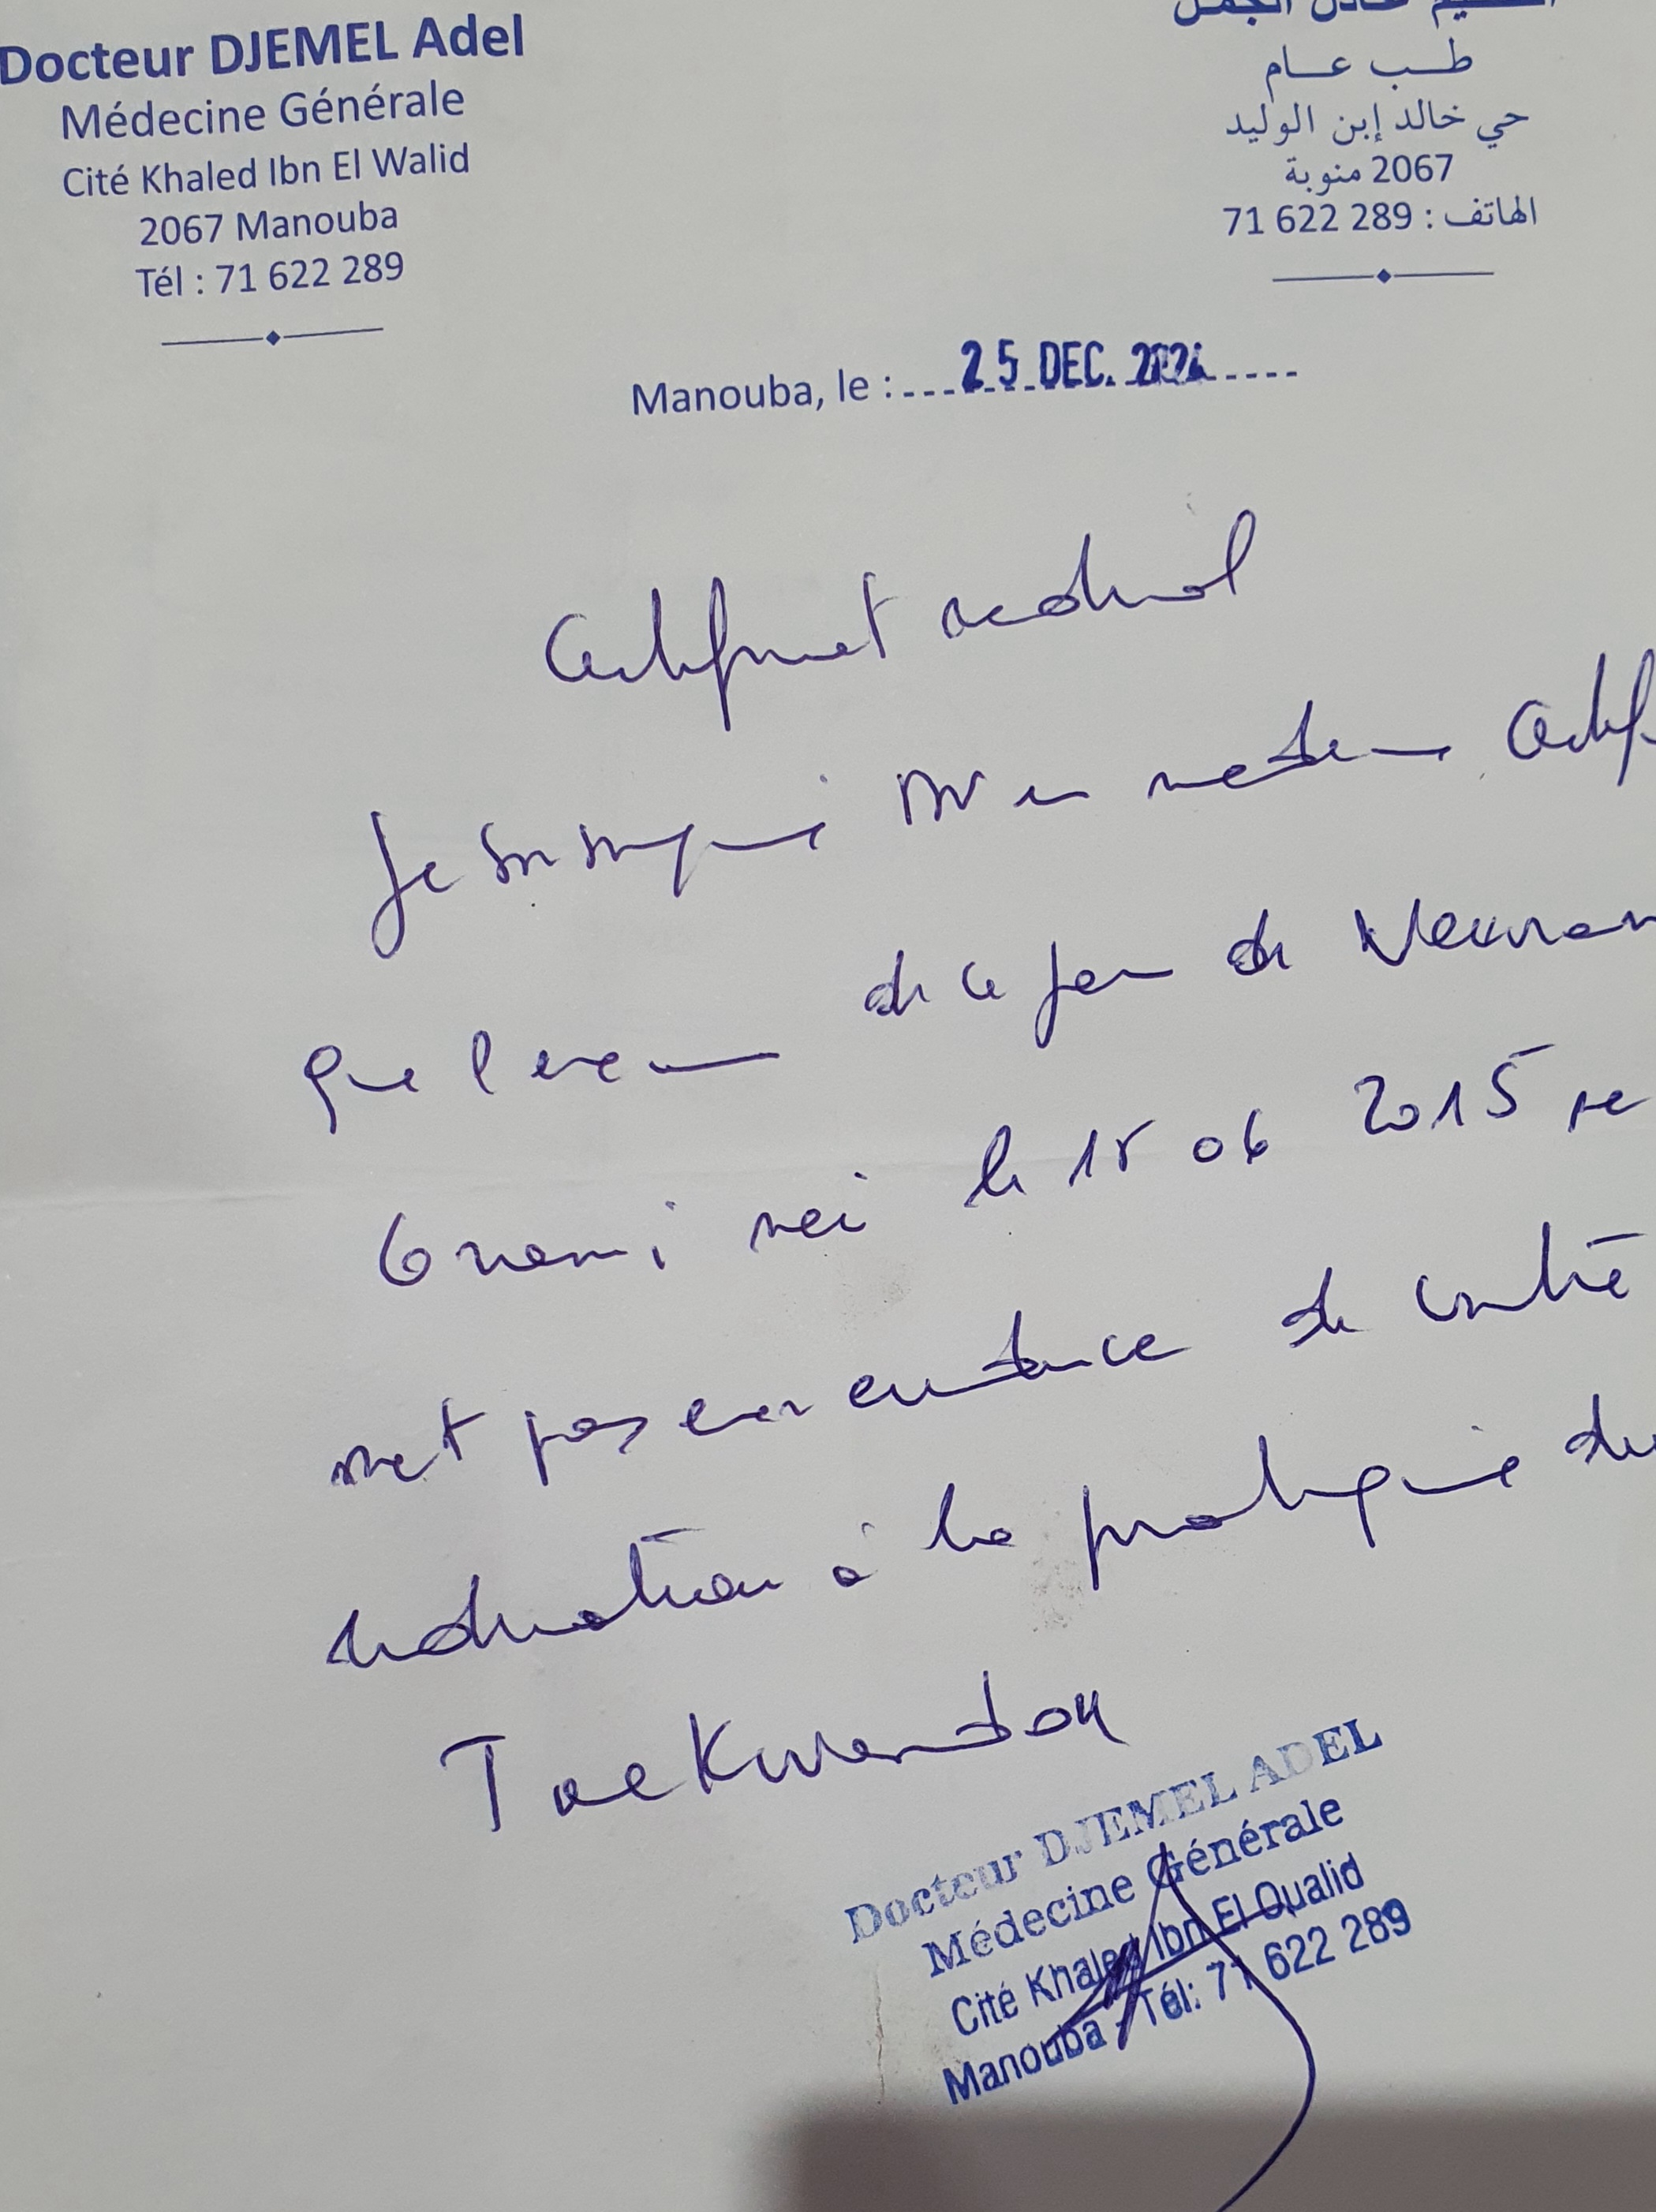 Docteur DJEMEL Adel
Médecine Générale
Cité Khaled Ibn El Walid
2067 Manouba
Tél : 71 622 289
طب عام
حي خالد إبن الوليد
2067 منوبة
الهاتف : 289 622 71
Manouba, le : 25 DEC. 2024
Certificat medical
Je soussigné Dr en medecine Certif
que l'examen de ce jour de
né le 15 06 2015 ne
met pas en evidence de contre
indication à la pratique du
Taekwondou
Docteur DJEMEL ADEL
Médecine Générale
Cité Khaled Ibn El Oualid
Manouba - Tél: 71 622 289